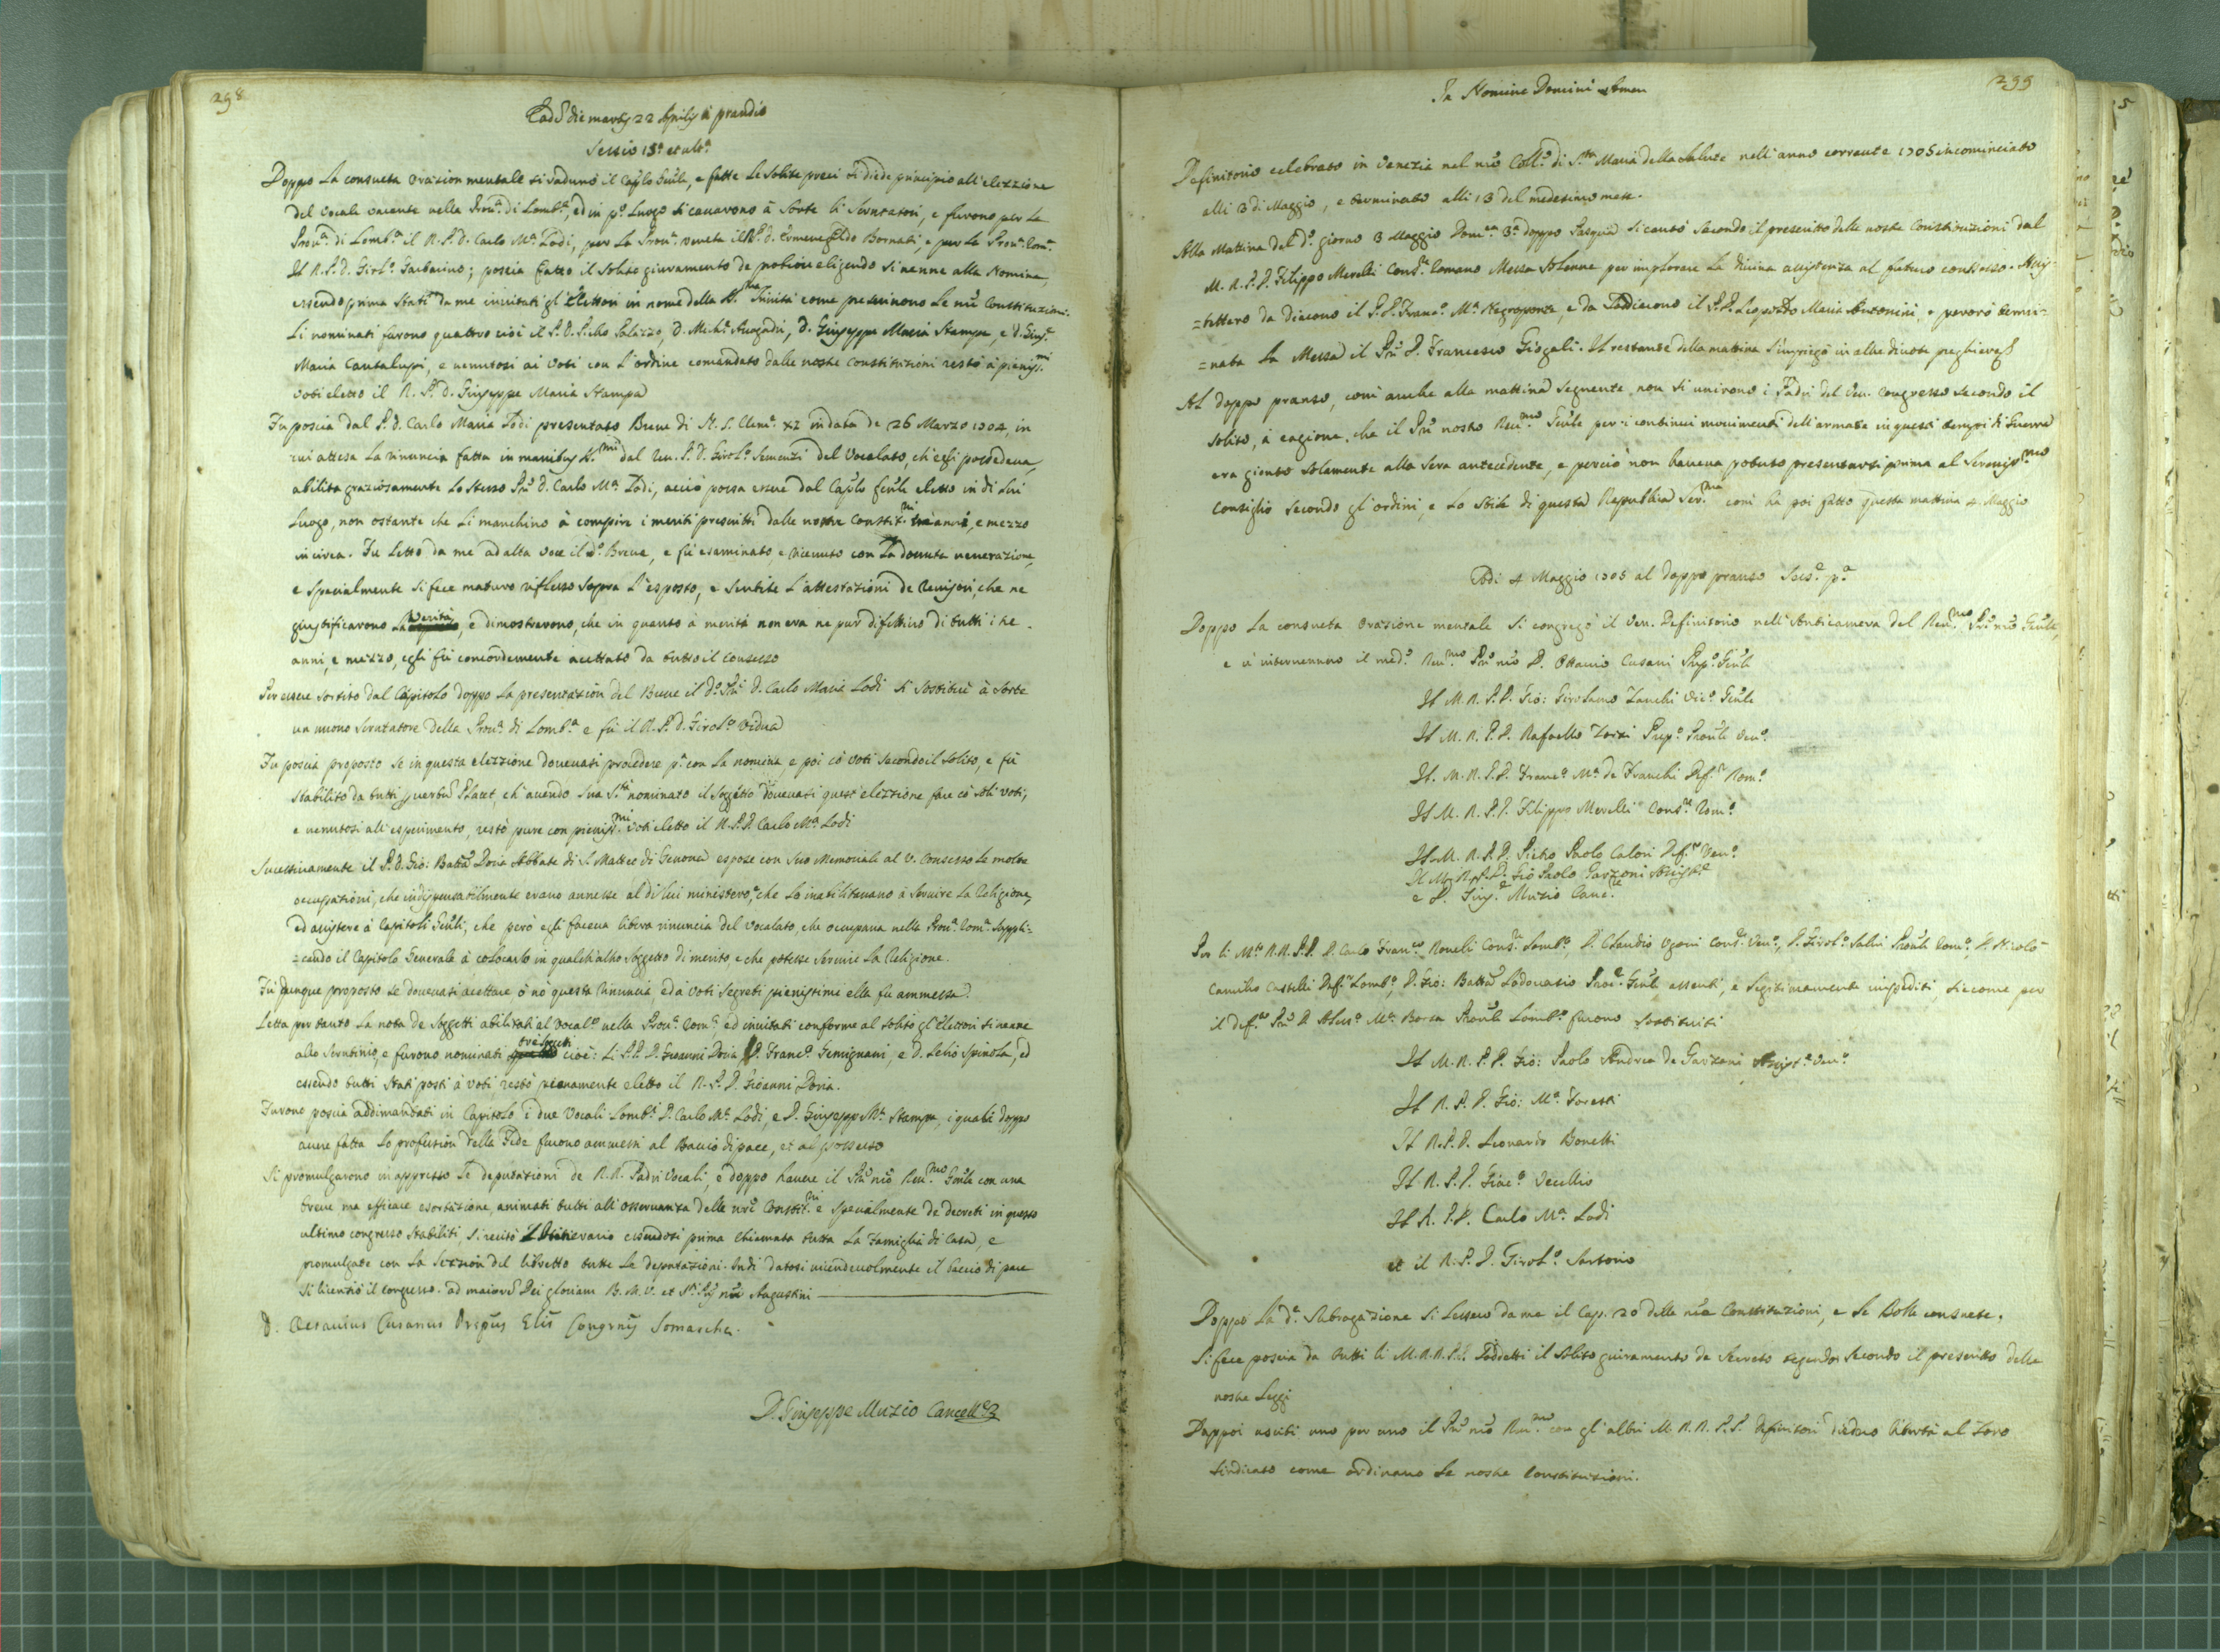 298
Eadē die martis 22 Aprilis à prandio
Sessio 13.ª et ult.ª
Doppo la consueta orazion mentale si radunò il Cap̄lo Gēnle, e fatte le solite preci si diede principio all'elezzione
del Vocale vacante nella Prou.ª di Lomb.ª, ed in p.º luogo si cauarono à sorte li Scrutatori, e furono per la
Prou.ª di Lomb.ª il R. P. D. Carlo M.ª Lodi, per la Prou.ª Veneta il R. P. D. Ermenegildo Bornati, e per la Prou.ª Rom.ª
Il R. P. D. Girol.º Garbarino; poscia fatto il solito giuramento de eligendo si uenne alla Nomina,
essendo prima stati da me inuitati gl'Elettori in nome della SS.ma Trinità come prescriuono le nrē Constituzioni.
Li nominati furono quattro cioè il P. D. Salizzo, D. Mich.e D. Giuseppe Maria Stampa, e D. Gius.e
Maria Cantalupi, e uenutosi ai Voti con l'ordine comandato dalle nostre Constituzioni restò à pieniss.mi
voti eletto il R. P. D. Giuseppe Maria Stampa
Fu poscia dal P. D. Carlo Maria Lodi presentato Breue di N. S. Clem.e XI in data de 26 Marzo 1704, in
cui attesa la rinuncia fatta in manibus SS.mi dal Reu. P. D. Girol.º Semenzi del Vocalato, ch'egli possedeua,
abilita graziosamente lo stesso Prē D. Carlo M.ª Lodi, acciò possa essere dal Cap̄lo Gēnle eletto in di lui
luogo, non ostante che li manchino à compire i meriti prescritti dalle nostre Constit.ni trè anni, e mezzo
in circa. Fu letto da me ad alta voce il d.º Breue, e fù esaminato, e riceuuto con la douuta uenerazione,
e specialmente si fece maturo riflesso sopra l'esposto, e sentite l'attestazioni de Reuisori, che ne
giustificarono la verità, e dimostrarono, che in quanto à meriti non era ne pur difettiuo di tutti i tre
anni, e mezzo, egli fù concordemente accettato da tutto il consesso
Per essere sortito dal Capitolo doppo la presentazion del Breue il d.º Prē D. Carlo Maria Lodi si sostituì à sorte
un nuouo Scrutatore della Prou.ª di Lomb.ª e fù il R. P. D. Girol.º Vidua
Fu poscia proposto se in questa elezzione doueuasi procedere p.ª con la nomina, e poi cō voti secondo il solito, e fù
stabilito da tutti per verbū Placet, ch'auendo Sua S.tà nominato il soggetto doueuasi quest'elezzione fare cō soli voti,
e uenutosi all'esperimento, restò pure con pieniss.mi voti eletto il R. P. D. Carlo M.ª Lodi
Sucessiuamente il P. D. Gio: Battā Doria Abbate di S. Matteo di Genoua espose con suo Memoriale al V. Consesso le molte
occupazioni, che indispensabilmente erano annesse al di lui ministero, che lo inabilitauano à seruire la Religione,
ed assistere à Capitoli Gēnli, che però egli faceua libera rinuncia del Vocalato, che occupaua nella Prou.ª Rom.ª suppli=
=cando il Capitolo Generale à colocarlo in qualch'altro soggetto di merito, e che potesse seruire la Religione.
Fù dunque proposto se doueuasi accettare, ò nò questa rinuncia, ed a voti segreti pienissimi ella fu ammessa.
Letta per tanto la nota de soggetti abilitati al Vocal.º nella Prou.ª Rom.ª ed inuitati conforme al solito gl'Elettori si uenne
allo Scrutinio, e furono nominati tre cioè: Li P.P. D. Gioanni Doria, D. Franc.º Gemignani, e D. Lelio Spinola, ed
essendo tutti stati posti à voti, restò pienamente eletto il R. P. D. Gioanni Doria.
Furono poscia addimandati in Capitolo i due Vocali Lomb.i D. Carlo M.ª Lodi, e D. Giuseppe M.ª Stampa, i quali doppo
auere fatta la profession della Fede furono ammessi al Baccio di pace, et al possesso
Si promulgarono in appresso le deputazioni de R.R. Padri Vocali, e doppo hauere il Prē nrō Reu.mo Gēnle con una
breue ma efficace esortazione, animati tutti all'osseruanza delle nrē Constit.ni e specialmente de decreti in questo
ultimo congresso stabiliti, si recitò l'Itinerario essendosi prima chiamata tutta la Famiglia di Casa, e
promulgate con la lezzion del libretto tutte le deputazioni. Indi datosi uicendeuolmente il baccio di pace
si licenziò il congresso. ad maiorē Dei gloriam B. M. V. et S.ti P̄ris nrī Augustini
D. Octauius Cusanus Prepūs Glīs Congrnīs Somaschæ.
D. Giuseppe Muzio Cancell.e
299
In Nomine Domini Amen
Definitorio celebrato in Venezia nel nrō Coll.º di S.ta Maria della Salute nell'anno corrente 1705 incominciato
alli 3 di Maggio, e terminato alli 13 del medesimo mese.
Alla mattina del d.º giorno 3 Maggio Dom.ca 3.ª doppo Pasqua si cantò secondo il prescritto delle nostre Constituzioni dal
M. R. P. D. Filippo Merelli Cons.re Romano Messa solenne per implorare la diuina assistenza al futuro consesso. Assi=
=stettero da Diacono il P. D. Franc.º M.ª Negroponte, e da Soddiacono il P. D. Leopoldo Maria Antonini, e perorò termi=
=nata la Messa il Prē D. Francesco Gisgali. Il restante della mattina s'impiegò in altre diuote preghiere
Al doppo pranso, come anche alla mattina seguente non si unirono i Padri del Ven. Congresso secondo il
solito, à cagione, che il Prē nostro Reu.mo Gēnle per i continui mouimenti dell'armate in questi tempi di Guerra
era gionto solamente alla sera antecedente, e perciò non haueua potuto presentarsi prima al Sereniss.mo
Consiglio secondo gl'ordini, e lo stile di questa Republica Ser.ma come hà poi fatto questa mattina 4. Maggio
Adi 4 Maggio 1705 al doppo pranso Sess.e p.ª
Doppo la consueta orazione mentale si congregò il Ven. Definitorio nell'Anticamera del Reu.mo Prē nrō Gēnle,
e ui interuennero il med.º Reu.mo Prē nrō D. Ottauio Cusani Prep.º Gēnle
Il M. R. P. D. Gio: Girolamo Zanchi Vic.º Gēnle
Il M. R. P. D. Rafaello Prep.º Prouīle Ven.º
Il M. R. P. D. Franc.º M.ª de Franchi Def.r Rom.º
Il M. R. P. D. Filippo Merelli Cons.re Rom.º
Il M. R. P. D. Pietro Paolo Calori Def.r Ven.º
Il M. R. P. D. Gio Paolo Garzoni Assist.e
e D. Gius.e Muzio Canc.re
Per li M.to R.R. P.P. D. Carlo Fran.co Roueli Cons.re Lomb.º, D. Claudio Ugoni Cons.re Ven.º, D. Girol.º Salui Prouīle Rom.º, D. Nicolò
Camillo Castelli Def.r Lomb.º, D. Gio: Battā Lodouasio Proc.e Gēnle assenti, e legitimamente impediti, siccome per
il def.to Prē D. M.ª Borsa Prouīle Lomb.º furono sostituiti
Il M. R. P. D. Gio: Paolo Andrea de Garzoni Assist.e Ven.º
Il R. P. D. Gio: M.ª Toretti
Il R. P. D. Leonardo Bonetti
Il R. P. D. Giac.º Vecellio
Il R. P. D. Carlo M.ª Lodi
et il R. P. D. Girol.º Sartorio
Doppo la d.ª Subrogazione si lessero da me il Cap. 20 delle nrē Constituzioni, e le Bolle consuete.
Si fece poscia da tutti li M. R.R. P.P. Soddetti il solito giuramento de Secreto tegendo secondo il prescritto delle
nostre Leggi
Dappoi usciti uno per uno il Prē nrō Reu.mo con gl'altri M. R.R. P.P. Definitori diedero libertà al loro
sindicato come ordinano le nostre Constituzioni.